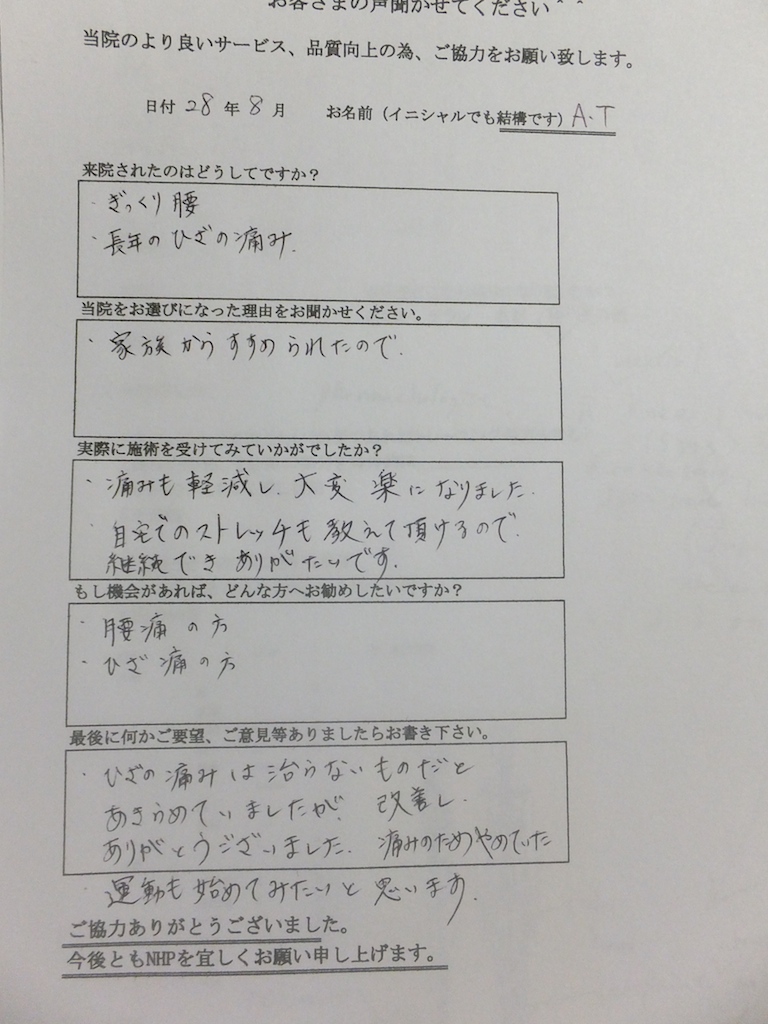 お客さまの声聞かせてください＾＾
当院のより良いサービス、品質向上の為、ご協力をお願い致します。
日付 28 年 8 月　お名前（イニシャルでも結構です）A.T
来院されたのはどうしてですか？
・ぎっくり腰
・長年のひざの痛み.
当院をお選びになった理由をお聞かせください。
・家族からすすめられたので.
実際に施術を受けてみていかがでしたか？
・痛みも軽減し、大変楽になりました.
自宅でのストレッチも教えて頂けるので.
継続できありがたいです.
もし機会があれば、どんな方へお勧めしたいですか？
・腰痛の方
・ひざ痛の方
最後に何かご要望、ご意見等ありましたらお書き下さい。
・ひざの痛みは治らないものだと
あきらめていましたが、改善し.
ありがとうございました. 痛みのためやめていた
・運動も始めてみたいと思います.
ご協力ありがとうございました。
今後ともNHPを宜しくお願い申し上げます。